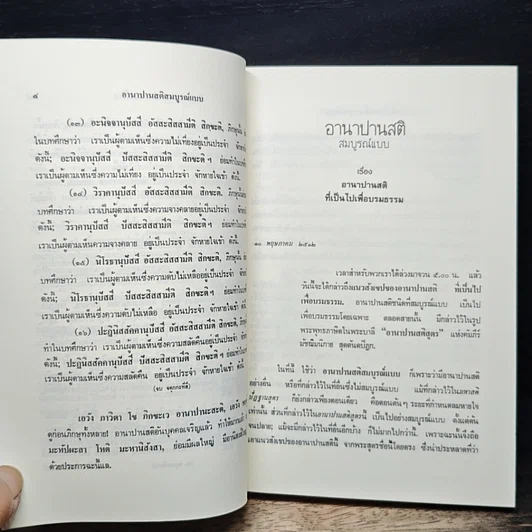 ๔ อานาปานสติสมบูรณ์แบบ
(๑๓) อะนิจจานุปัสสี อัสสะสิสสามีติ สิกขะติ, ภิกษุนั้น
ในบทศึกษาว่า เราเป็นผู้ตามเห็นซึ่งความไม่เที่ยงอยู่เป็นประจำ จัก
ดังนี้; อะนิจจานุปัสสี ปัสสะสิสสามีติ สิกขะติฯ ย่อมทำใน
เราเป็นผู้ตามเห็นซึ่งความไม่เที่ยง อยู่เป็นประจำ จักหายใจเข้า ดังนี้
(๑๔) วิราคานุปัสสี อัสสะสิสสามีติ สิกขะติ, ภิกษุนั้น
บทศึกษาว่า เราเป็นผู้ตามเห็นซึ่งความจางคลาย อยู่เป็นประจำ จักหาย
ดังนี้; วิราคานุปัสสี ปัสสะสิสสามีติ สิกขะติฯ ย่อมทำในบท
เราเป็นผู้ตามเห็นซึ่งความจางคลาย อยู่เป็นประจำ จักหายใจเข้า ดังนี้.
(๑๕) นิโรธานุปัสสี อัสสะสิสสามีติ สิกขะติ, ภิกษุนั้น
ในบทศึกษาว่า เราเป็นผู้ตามเห็นซึ่งความดับไม่เหลืออยู่เป็นประจำ จัก
ดังนี้; นิโรธานุปัสสี ปัสสะสิสสามีติ สิกขะติฯ ย่อมทำใน
เราเป็นผู้ตามเห็นซึ่งความดับไม่เหลือ อยู่เป็นประจำ จักหายใจเข้า
(๑๖) ปะฏินิสสัคคานุปัสสี อัสสะสิสสามีติ สิกขะติ,
ทำในบทศึกษาว่า เราเป็นผู้ตามเห็นซึ่งความสลัดคืนอยู่เป็นประจำ
ดังนี้; ปะฏินิสสัคคานุปัสสี ปัสสะสิสสามีติ สิกขะติฯ ย่อมทำ
เราเป็นผู้ตามเห็นซึ่งความสลัดคืน อยู่เป็นประจำ จักหายใจเข้า ดังนี้.
(จบ จตุกกะที่สี่)
เอวัง ภาวิตา โข ภิกขะเว อานาปานะสะติ, เอวัง
ดูก่อนภิกษุทั้งหลาย! อานาปานสติอันบุคคลเจริญแล้ว ทำให้มาก
มะหัปผะลา โหติ มะหานิสังสา, ย่อมมีผลใหญ่ มีอานิสงส์
ด้วยประการฉะนี้แล.
อานาปานสติ
สมบูรณ์แบบ
เรื่อง
อานาปานสติ
ที่เป็นไปเพื่อบรมธรรม
๑๑ พฤษภาคม ๒๕๑๒
เวลาสำหรับพวกเราได้ล่วงมาจวน ๕.๐๐ น. แล้ว
วันนี้จะได้กล่าวถึงแนวสังเขปของอานาปานสติ ที่เป็นไป
เพื่อบรมธรรม. อานาปานสติชนิดที่สมบูรณ์แบบ เป็นไป
เพื่อบรมธรรมโดยเฉพาะ ตลอดสายนั้น มีกล่าวไว้ในรูป
พระพุทธภาษิตในพระบาลี "อานาปานสติสูตร" แห่งคัมภีร์
มัชฌิมนิกาย สุตตันตปิฎก.
ในที่นี้ ใช้ว่า อานาปานสติสมบูรณ์แบบ ก็เพราะว่ามีอานาปานสติ
อย่างอื่น หรือที่กล่าวไว้ในที่อื่นซึ่งไม่สมบูรณ์แบบ แม้ที่กล่าวไว้ในมหาสติ
ปัฏฐานสูตร ก็ยังกล่าวเพียงตอนเดียว คือตอนต้นๆ ระยะที่กำหนดลมหายใจ
เท่านั้น ส่วนที่กล่าวไว้ในอานาปานสติสูตรนั้น เป็นไปอย่างสมบูรณ์แบบ ตั้งแต่ต้น
จนปลาย; แม้จะมีกล่าวไว้ในที่อื่นอีกบ้าง ก็ไม่มากไปกว่านี้. เพราะฉะนั้นจึงถือ
เอาแนวสังเขปของอานาปานสตินี้ จากพระสูตรชื่อนี้โดยตรง ซึ่งน่าประหลาดที่ว่า